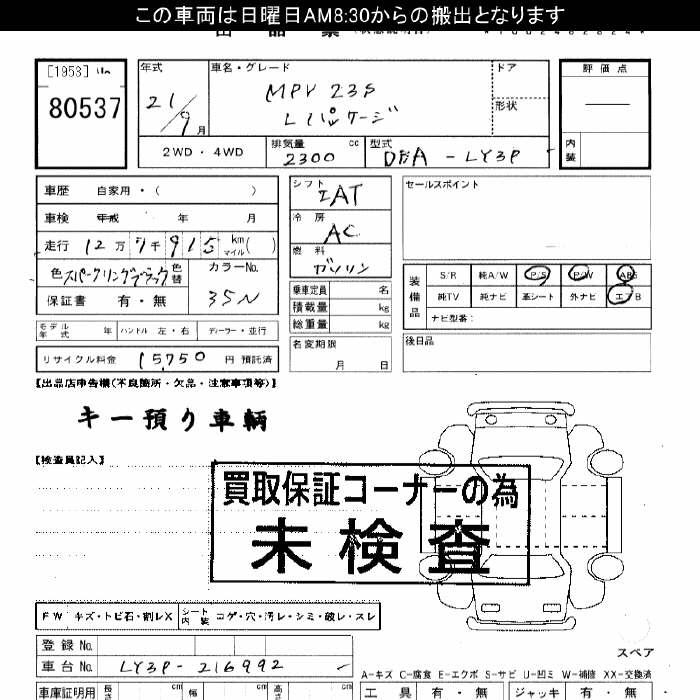 この車両は日曜日AM8:30からの搬出となります
[1953]
80537
年式
21/9月
車名・グレード
MPV 23S
Lパッケージ
ドア
形状
評価点
内装
2WD・4WD
排気量 cc
2300
型式
DBA - LY3P
車歴 自家用・( )
車検 平成 年 月
走行 12万7千915 km マイル( )
色 スパークリングブラック 色替
カラーNo.
35N
保証書 有・無
シフト
IAT
冷房
AC
燃料
ガソリン
乗車定員 名
積載量 kg
総重量 kg
名変期限
月 日
セールスポイント
装備品
S/R 純A/W P/S P/W ABS
純TV 純ナビ 革シート 外ナビ エアB
ナビ型番:
後日品
モデル年式 年 ハンドル 左・右 ディーラー・並行
リサイクル料金 15,750 円 預託済
【出品店申告欄(不良箇所・欠品・注意事項等)】
キー預り車輌
【検査員記入】
買取保証コーナーの為
未検査
FW キズ・トビ石・割レX シート内装 コゲ・穴・汚レ・シミ・破レ・スレ
登録No.
車台No. LY3P-216992
スペア
A-キズ C-腐食 E-エクボ S-サビ U-凹ミ W-補修 XX-交換済
車庫証明用 長さ cm 幅 cm 高さ cm
工具 有・無 ジャッキ 有・無